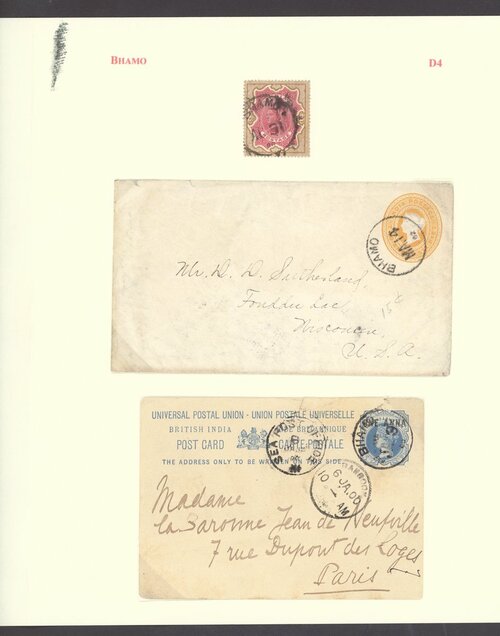 BHAMO
D4
BHAMO
MA 14
92
Mr. D. D. Sutherland,
Fondau Lac,
Wisconsin,
U. S. A.
UNIVERSAL POSTAL UNION - UNION POSTALE UNIVERSELLE
BRITISH INDIA
POST CARD
CARTE-POSTALE
THE ADDRESS ONLY TO BE WRITTEN ON THIS SIDE
ONE ANNA
BHAMO
SEA POST OFFICE
6 JA.00
10 AM
Madame
la Baronne Jean de Neufville
7 rue Dupont des Loges
Paris